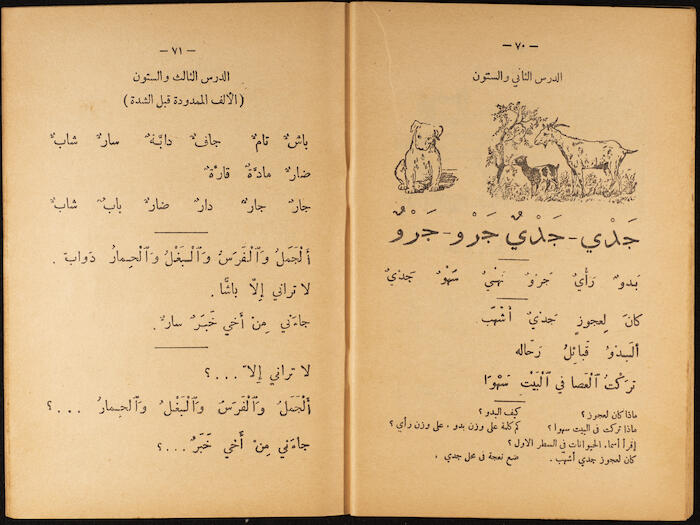 — ٧٠ —
الدرس الثاني والستون
جَدْي - جَدْيٌ جَرْو - جَرْوٌ
بَدوٌ رَأْيٌ جَروٌ نَهْيٌ سَهْوٌ جَديٌ
كانَ لِعجوزٍ جَديٌ أَشْهَب
ألبَدْوُ قَبائِلُ رَحاله
تركتُ ٱلْعَصا في ٱلْبَيْتِ سَهْوًا
ماذا كان لعجوز ؟ كيف البدو ؟
ماذا تركت في البيت سهوا ؟ كم كلمة على وزن بدو ، على وزن رأي ؟
إقرأ أسماء الحيوانات في السطر الاول ؟
كان لعجوز جدي أشهب . ضع نعجة في محل جدي .
— ٧١ —
الدرس الثالث والستون
(الألف الممدودة قبل الشدة)
باشٌّ تامٌّ جافٌّ دابَّةٌ سارٌّ شابٌّ
ضارٌّ مادَّةٌ قارَّةٌ
جارٌ جارٌّ دارٌ ضارٌّ بابٌ شابٌّ
ألْجَمَلُ وَٱلْفَرَسُ وَٱلْبَغْلُ وَٱلْحِمارُ دَوابّ .
لا تراني إلّا باشًّا .
جاءَني مِنْ أَخي خَبَرٌ سارٌّ .
لا تراني إلّا . . . ؟
ألْجَمَلُ وَٱلْفَرَسُ وَٱلْبَغْلُ وَٱلْحِمارُ . . . ؟
جاءَني مِنْ أَخي خَبَرٌ . . . ؟